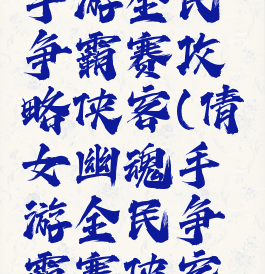 手游全民
争霸赛攻
略侠客(倩
女幽魂手
游全民争
霸赛侠客